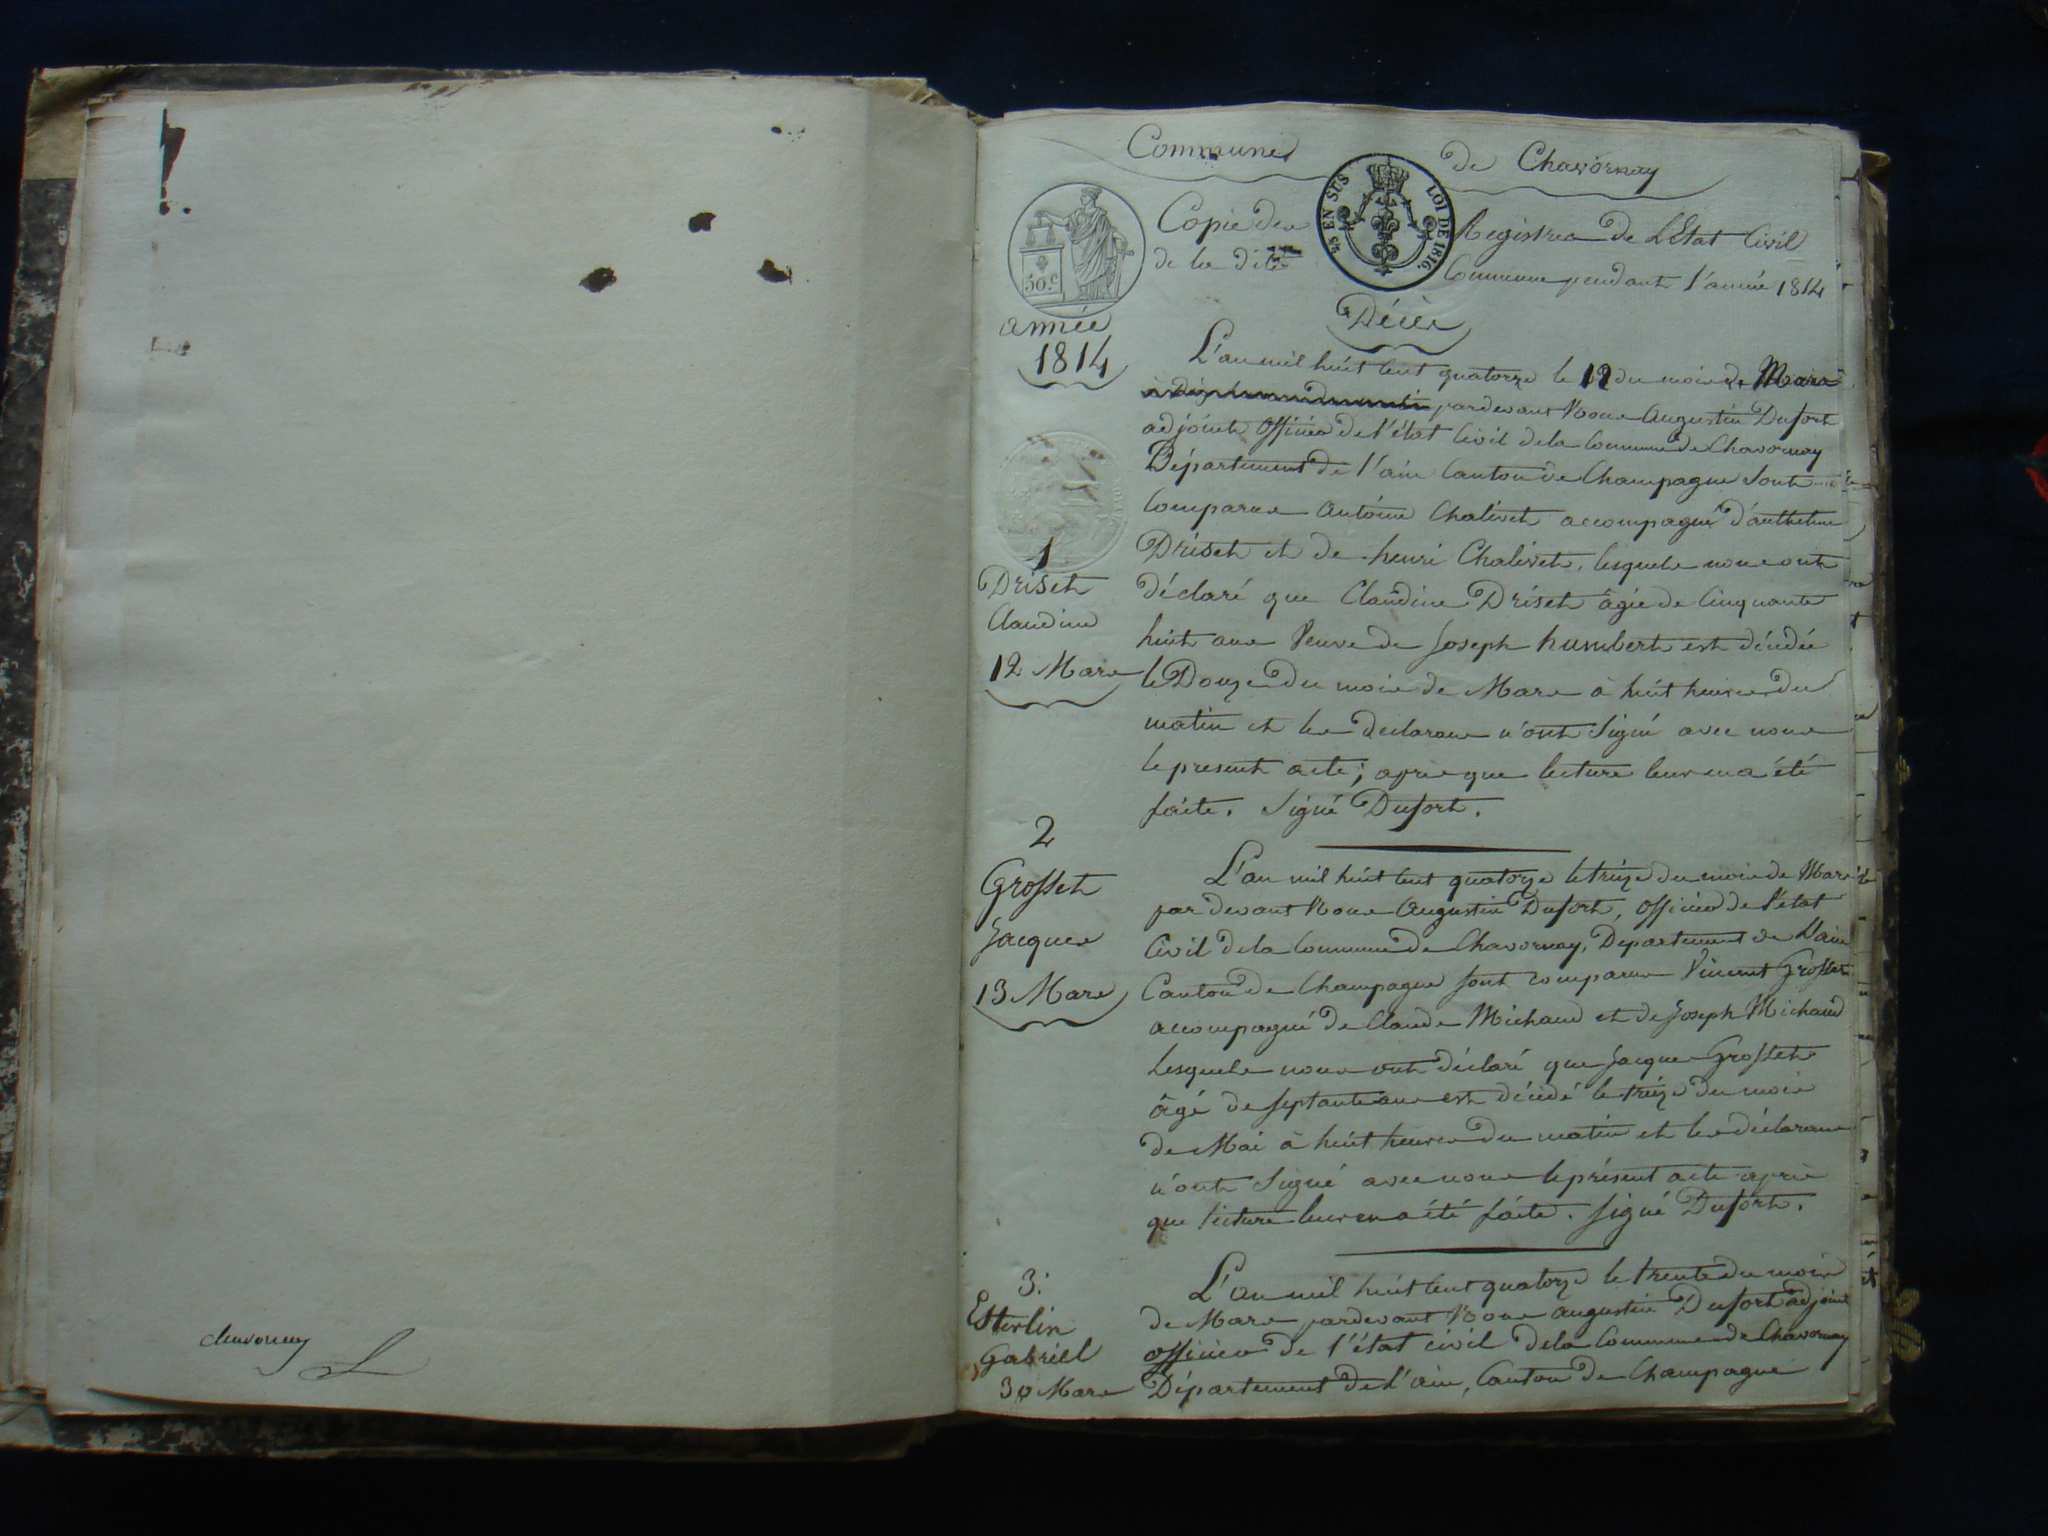 Commune de Chavornay
Copie des Registres de L'Etat Civil
de la dite Commune pendant l'année 1814
25 EN SUS
LOI DE 1816.
50.c
année
1814
Décès
L'an mil huit cent quatorze le 12 du mois de Mars
pardevant Nous Augustin Dufort
adjoint Officier de l'état Civil de la Commune de Chavornay
Département de l'ain Canton de Champagne Sont
Comparus Antoine Chalivet accompagné d'anthelme
Driset et de henri Chalivet, lesquels nous ont
déclaré que Claudine Driset âgée de Cinquante
huit ans Veuve de Joseph humbert est décédée
le Douze du mois de Mars à huit heures du
matin et les declarans n'ont Signé avec nous
le present acte; après que lecture leur en a été
faite. Signé Dufort.
1
Driset
Claudine
12 Mars
L'an mil huit cent quatorze le treize du mois de Mars
par devant Nous Augustin Dufort, Officier de l'état
Civil de la Commune de Chavornay, Departement de L'ain
Canton de Champagne sont comparus Vincent Grosset
accompagné de Claude Michaud et de Joseph Michaud
Lesquels nous ont déclaré que Jacques Grosset
âgé de septante ans est décédé le treize du mois
de Mai à huit heures du matin et les déclarans
n'ont Signé avec nous le présent acte après
que lecture leur en a été faite. signé Dufort.
2
Grosset
Jacques
13 Mars
L'an mil huit cent quatorze le trente du mois
de Mars pardevant Nous augustin Dufort adjoint
officier de l'état civil de la Commune de Chavornay
Département de l'ain, Canton de Champagne
3.
Esterlin
Gabriel
30 Mars
chavornay